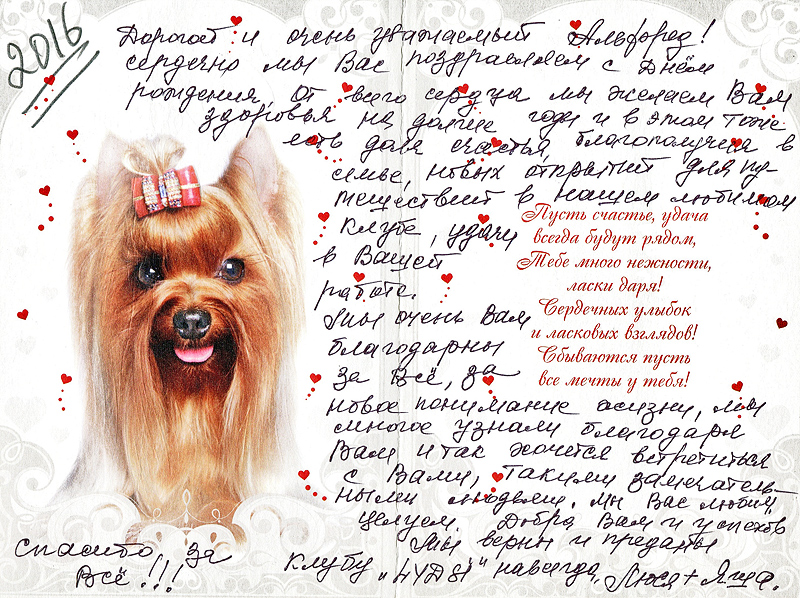 2016
Дорогой и очень уважаемый Альфред!
сердечно мы Вас поздравляем с Днём
рождения, от всего сердца мы желаем Вам
здоровья на долгие годы и в этом тоже
есть доля счастья, благополучия в
семье, новых открытий для пу-
тешествий в нашем любимом
клубе, удачи
в Вашей
работе.
Мы очень Вам
благодарны
за Всё, за
новое понимание жизни, мы
многое узнали благодаря
Вам и так хочется встретиться
с Вами, такими замечатель-
ными людьми. Мы Вас любим,
целуем. Добра Вам и успехов
Мы верны и преданы
клубу „LYDSI" навсегда, Люся + Яша.
Спасибо за
Всё!!!
Пусть счастье, удача
всегда будут рядом,
Тебе много нежности,
ласки даря!
Сердечных улыбок
и ласковых взглядов!
Сбываются пусть
все мечты у тебя!